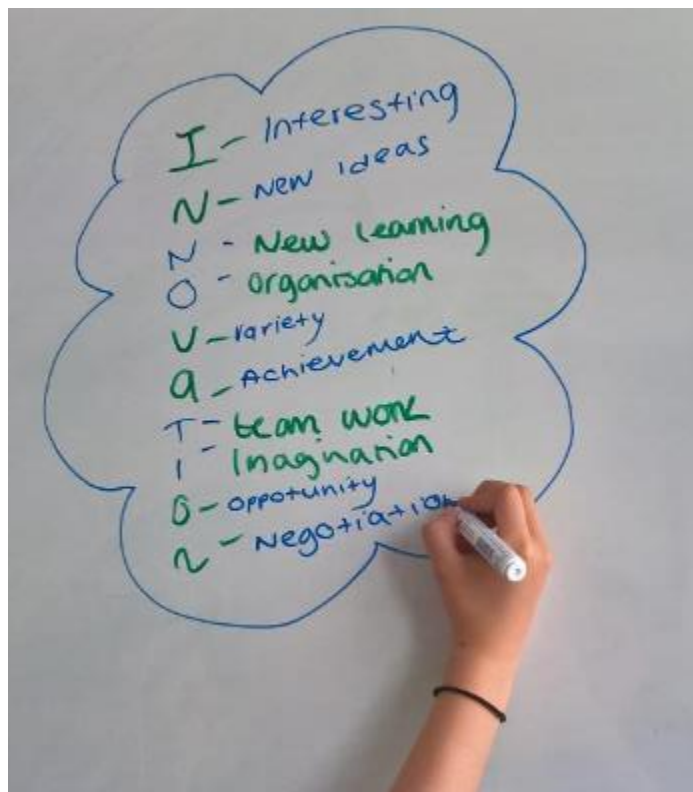 I - Interesting
N - New ideas
N - New learning
O - Organisation
V - Variety
a - Achievement
T - team work
I - Imagination
O - oppotunity
N - Negotiation